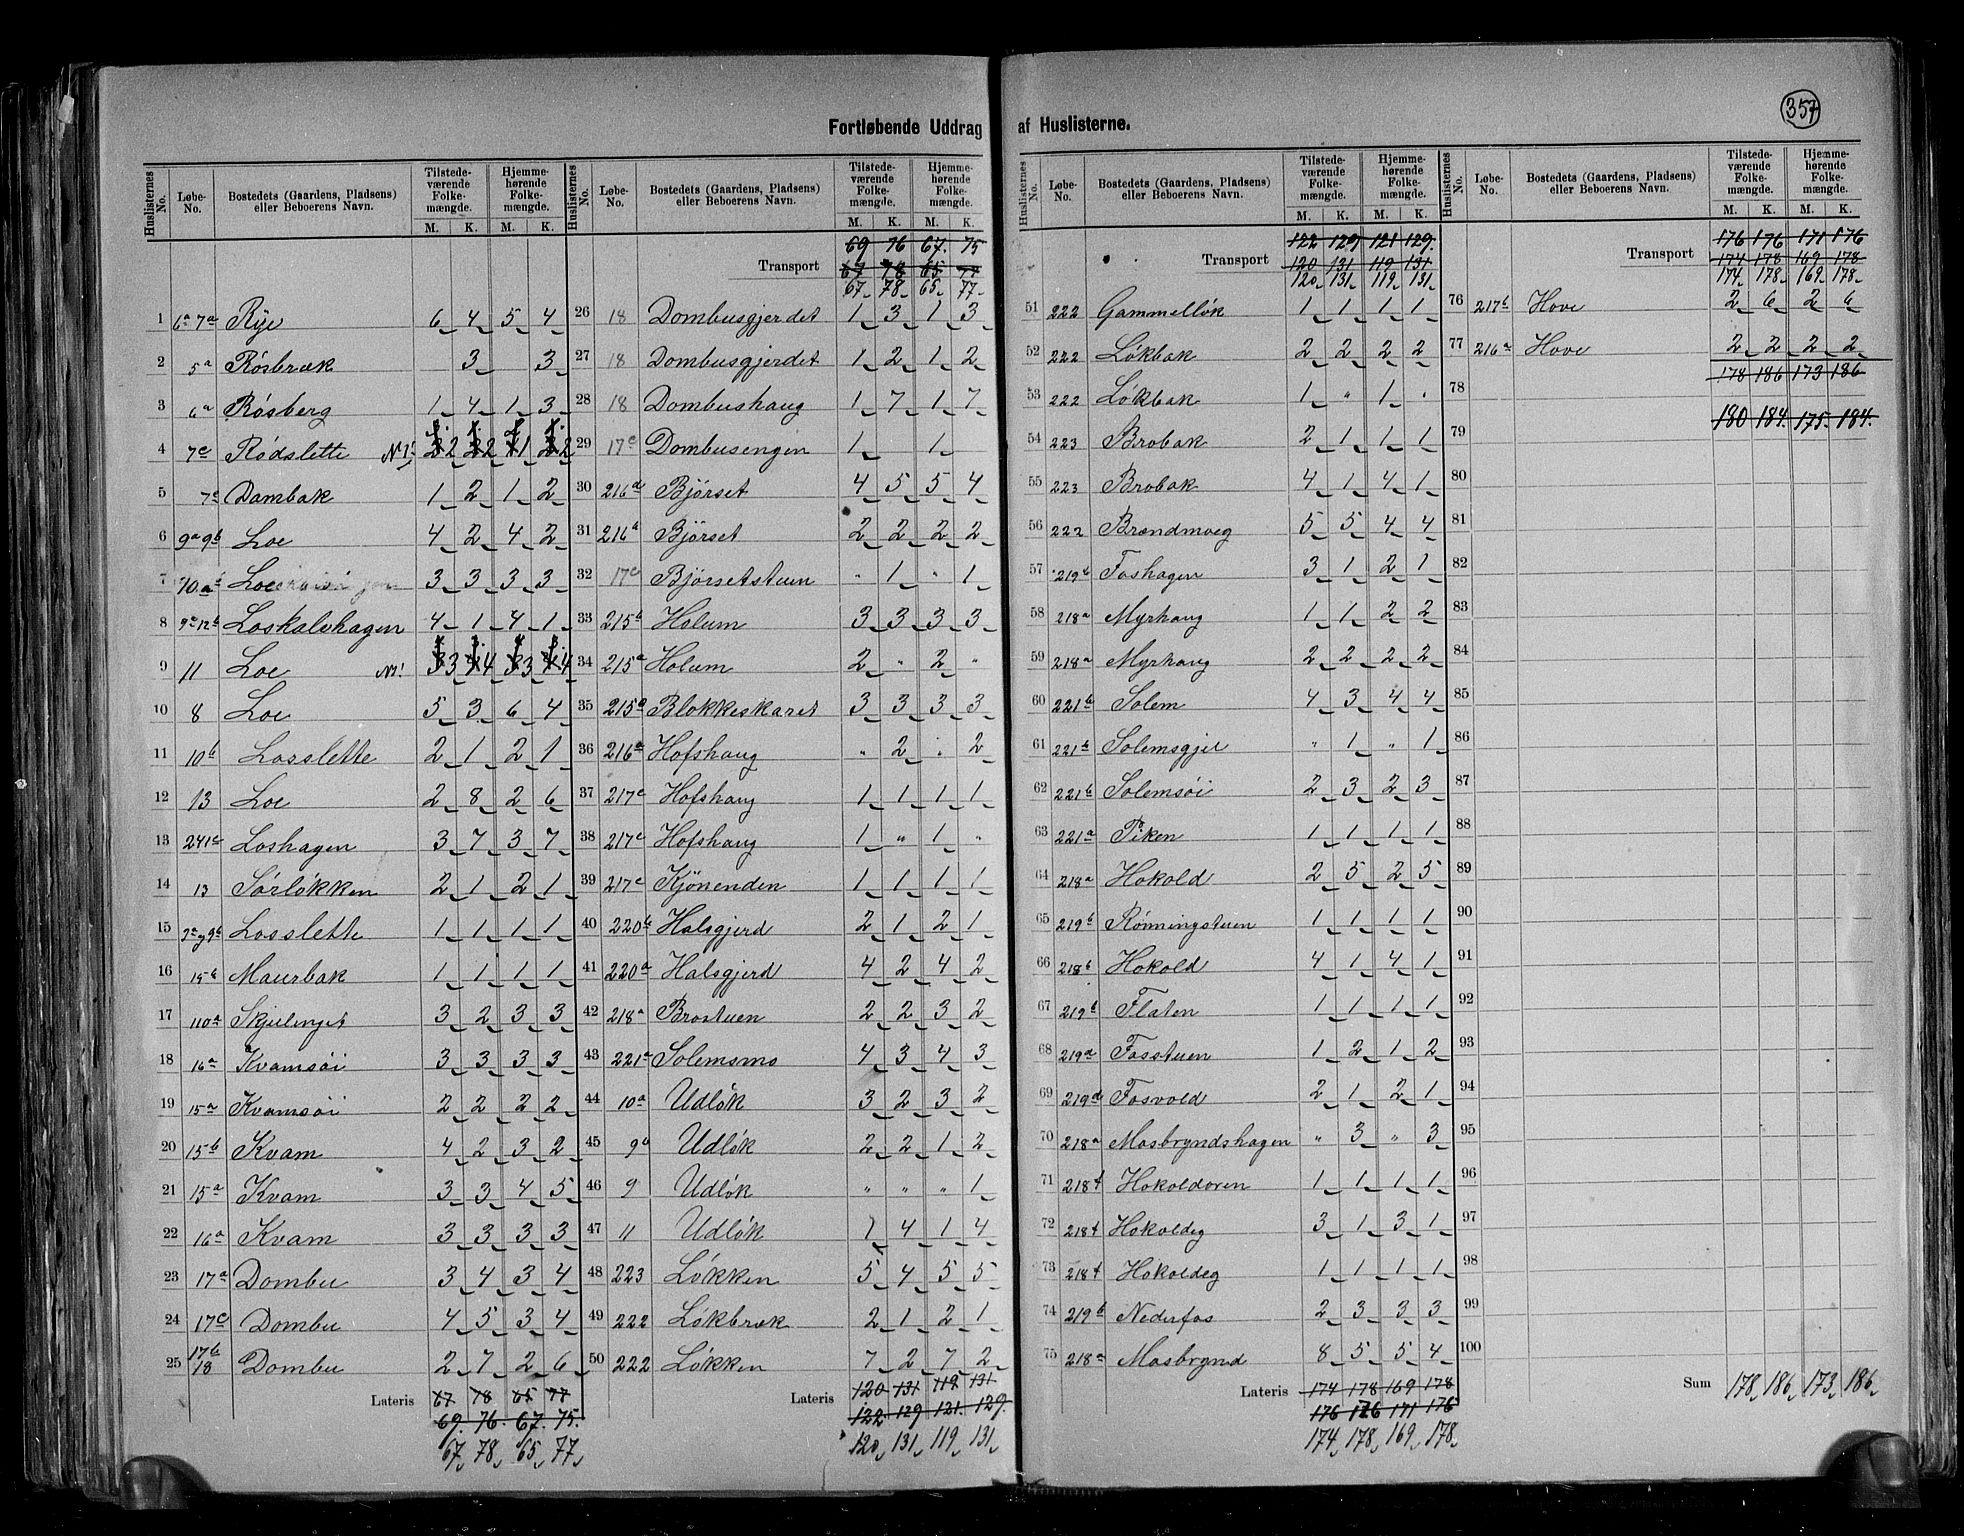 357
Fortløbende Uddrag af Huslisterne.
Huslisternes No. Løbe-No. Bostedets (Gaardens, Pladsens) eller Beboerens Navn. Tilstedeværende Folkemængde. M. K. Hjemmehørende Folkemængde. M. K.
1 6a 7a Rye 6 4 5 4
2 5a Røsbræk 3 3
3 6a Røsberg 1 4 1 3
4 7c Rødslette N1! 2 2 1 2
5 7c Dambak 1 2 1 2
6 9a 9b Loe 4 2 4 2
7 10a Loe 3 3 3 3
8 9c 12b Loskalvhagen 4 1 4 1
9 11 Loe N! 3 4 3 4
10 8 Loe 5 3 6 4
11 10b Losslette 2 1 2 1
12 13 Loe 2 8 2 6
13 241c Loshagen 3 7 3 7
14 13 Sørløkken 2 1 2 1
15 Losslette 1 1 1 1
16 15b Maurbak 1 1 1 1
17 110a Skjulinget 3 2 3 3
18 16a Kvamsøi 3 3 3 3
19 15a Kvamsøi 2 2 2 2
20 15b Kvam 4 2 3 2
21 15a Kvam 3 3 4 5
22 16a Kvam 3 3 3 3
23 17a Dombu 3 4 3 4
24 17c Dombu 4 5 3 4
25 17b 18 Dombu 2 7 2 6
Lateris 67 78 65 77
69. 76. 67. 75.
67 78 65 77
Huslisternes No. Løbe-No. Bostedets (Gaardens, Pladsens) eller Beboerens Navn. Tilstedeværende Folkemængde. M. K. Hjemmehørende Folkemængde. M. K.
69 76 67. 75
Transport 67 78 65 77
67 78 65 77
26 18 Dombusgjerdet 1 3 1 3
27 18 Dombusgjerdet 1 2 1 2
28 18 Dombushaug 1 7 1 7
29 17c Dombusengen 1 1
30 216a Bjørset 4 5 5 4
31 216a Bjørset 2 2 2 2
32 17c Bjørsetstuen " 1 " 1
33 215b Holum 3 3 3 3
34 215a Holum 2 " 2 "
35 215a Blokkeskaret 3 3 3 3
36 216a Hofshaug " 2 " 2
37 217c Hofshaug 1 1 1 1
38 217c Hofshaug 1 " 1 "
39 217c Kjønenden 1 1 1 1
40 220b Halsgjerd 2 1 2 1
41 220a Halsgjerd 4 2 4 2
42 218a Brostuen 2 2 3 2
43 221a Solemsmo 4 3 4 3
44 10a Udløk 3 2 3 2
45 9b Udløk 2 2 1 2
46 9 Udløk " " " 1
47 11 Udløk 1 4 1 4
48 223 Løkken 5 4 5 5
49 222 Løkbræk 2 1 2 1
50 222 Løkken 7 2 7 2
Lateris 120 131 119 131
122 129 121. 129.
120 131 119 131
Huslisternes No. Løbe-No. Bostedets (Gaardens, Pladsens) eller Beboerens Navn. Tilstedeværende Folkemængde. M. K. Hjemmehørende Folkemængde. M. K.
122 129 121 129.
Transport 120 131 119 131
120 131 119 131
51 222 Gammelløk 1 1 1 1
52 222 Løkbak 2 2 2 2
53 222 Løkbak 1 " 1 "
54 223 Brobak 2 1 1 1
55 223 Brobak 4 1 4 1
56 222 Brændmoeg 5 5 4 4
57 219b Foshagen 3 1 2 1
58 218a Myrhaug 1 1 2 2
59 218a Myrhaug 2 2 2 2
60 221b Solem 4 3 4 4
61 221b Solemsgjel " 1 " 1
62 221b Solemsøi 2 3 2 3
63 221a Piken 1 1 1 1
64 218a Hokold 2 5 2 5
65 219b Rønningstuen 1 1 1 1
66 218b Hokold 4 1 4 1
67 219b Flaten 1 1 1 1
68 219a Fosstuen 1 2 1 2
69 219d Fosvold 2 1 2 1
70 218a Mosbryndshagen " 3 " 3
71 218f Hokoldoren 1 1 1 1
72 218f Hokoldeg 3 1 3 1
73 218f Hokoldeg 1 1 1 1
74 219b Nederfos 2 3 3 3
75 218a Mosbrynd 8 5 5 4
Lateris 174 178 169 178
176 176 171 176
174 178 169 178
Huslisternes No. Løbe-No. Bostedets (Gaardens, Pladsens) eller Beboerens Navn. Tilstedeværende Folkemængde. M. K. Hjemmehørende Folkemængde. M. K.
176 176 171 176
Transport 174 178 169 178
174 178 169 178
76 217b Hove 2 6 2 6
77 216a Hove 2 2 2 2
178 186 173 186
78
180 184. 175. 184.
79
80
81
82
83
84
85
86
87
88
89
90
91
92
93
94
95
96
97
98
99
100
Sum 178 186 173 186